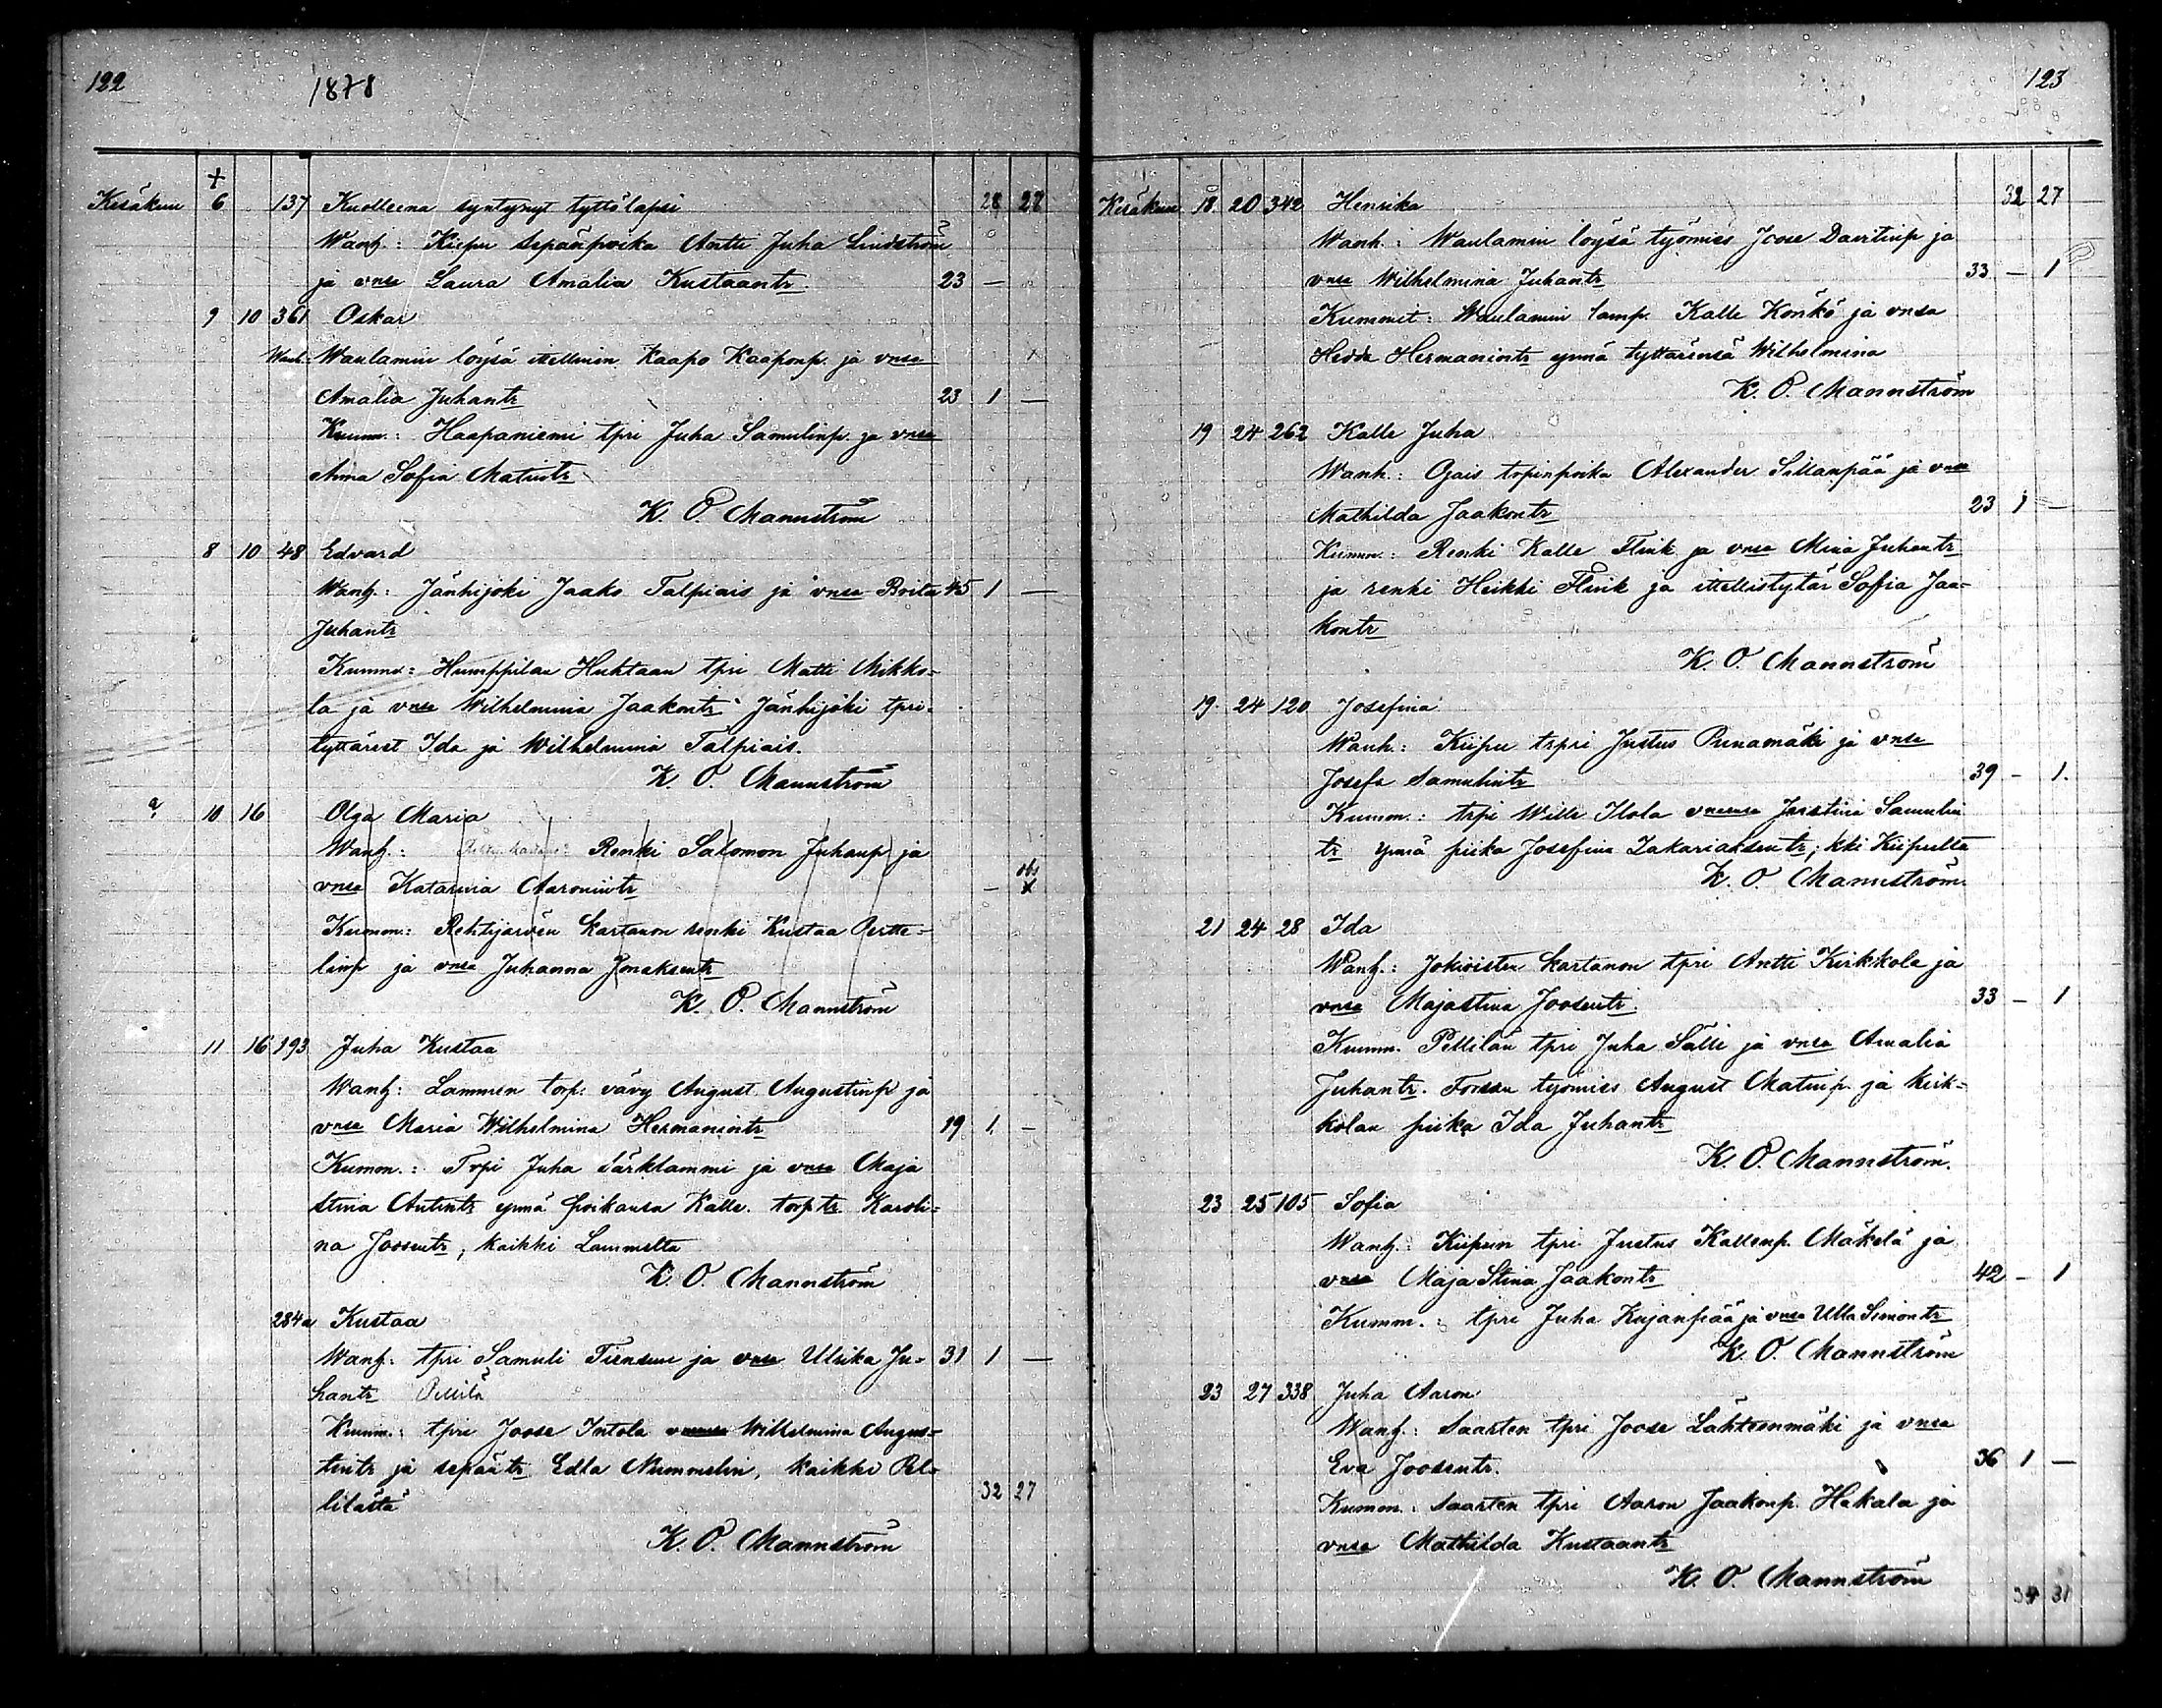 122 1878
+
Kesäkuu 6 137 Kuolleena syntynyt tyttölapsi 28 27
Wanh.: Kiipu sepänpoika Antti Juha Lindström
ja vnsa Laura Amalia Kustaantr. 23 —
9 10 361 Oskar
Wanh. Waulamin löysä itellinen Kaapo Kaaponp. ja vnsa
Amalia Juhantr 23 1 —
Kumm.: Haapaniemi tpri Juha Samulinp. ja vnsa
Anna Sofia Matintr
K. O. Mannström
8 10 48 Edvard
Wanh.: Jänhijoki Jaako Talpiais ja vnsa Brita 45 1 —
Juhantr
Kumm: Humppilan Huhtaan tpri Matti Mikko=
la ja vnsa Wilhelmina Jaakontr Jänhijoki tpri-
tyttärest Ida ja Wilhelmina Talpiais.
K. O. Mannström
10 16 Olga Maria
Wanh.: Renki Salomon Juhanp ja
vnsa Katarina Aaronintr — x
Kumm: Rehtijärven kartanon renki Kustaa Pertte=
linp ja vnsa Juhanna Jonaksentr
K. O. Mannström
11 16 193 Juha Kustaa
Wanh: Lammen torp: vävy August Augustinp ja
vnsa Maria Wilhelmina Hermanintr 19 1. —
Kumm.: Trpi Juha Särklammi ja vnsa Maja
Stina Antintr ynnä poikansa Kalle. torptr Karoli=
na Joosentr, kaikki Lammelta
K. O. Mannström
284a Kustaa
Wanh: tpri Samuli Tiensuu ja vnsa Ulrika Ju= 31 1 —
hantr Pellilä
Kumm.: tpri Joose Intola vnsa Wilhelmina Augus=
tintr ja sepäntr Edla Nummelin, kaikki Pel=
lilästä 32 27
K. O. Mannström
123
Kesäkuu 18 20 342 Henrika 32 27
Wanh.: Waulamin löysä työmies Joose Davitinp ja
vnsa Wilhelmina Juhantr 33 — 1
Kummit: Waulamin lamp. Kalle Könkö ja vnsa
Hedda Hermanintr ynnä tyttärensä Wilhelmina
K. O. Mannström
19 24 262 Kalle Juha
Wanh.: Ojais trpinpoika Alexander Sillanpää ja vnsa
Mathilda Jaakontr 23 1 —
Kumm.: Renki Kalle Flink ja vnsa Miina Juhantr
ja renki Heikki Flink ja itellistytär Sofia Jaa=
kontr
K. O. Mannström
19 24 120 Josefina
Wanh: Kiipu trpri Justus Punamäki ja vnsa
Josefa Samulintr 39 — 1.
Kumm.: trpi Wille Ilola Justina Samulin
tr ynnä piika Josefina Zakariaksentr; kki Kiipulta
K. O. Mannström.
21 24 28 Ida
Wanh.: Jokioisten kartanon tpri Antti Kirkkola ja
vnsa Majastina Joosentr 33 — 1
Kumm. Pellilän tpri Juha Sälli ja vnsa Amalia
Juhantr. Forssan työmies August Matinp. ja Kirk=
kolan piika Ida Juhantr
K. O. Mannström.
23 25 105 Sofia
Wanh.: Kiipun tpri Justus Kallenp. Mäkelä ja
vnsa Maja Stina Jaakontr 42 — 1
Kumm.: tpri Juha Kujanpää ja vnsa Ulla Simontr
K. O. Mannström
23 27 338 Juha Aaron
Wanh.: Saarten tpri Joose Lähteenmäki ja vnsa
Eva Joosentr. 36 1 —
Kumm.: Saarten tpri Aaron Jaakonp. Hakala ja
vnsa Mathilda Kustaantr
K. O. Mannström
34 31